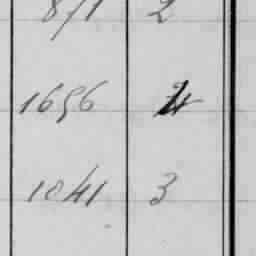 871 2
1656 4
1041 3